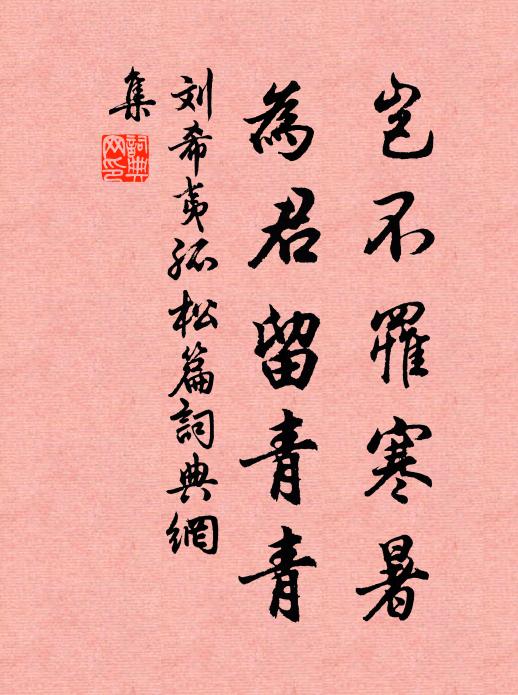 岂不罹寒暑
為君留青青
刘希夷孤松篇詞典網
集
詞典网印